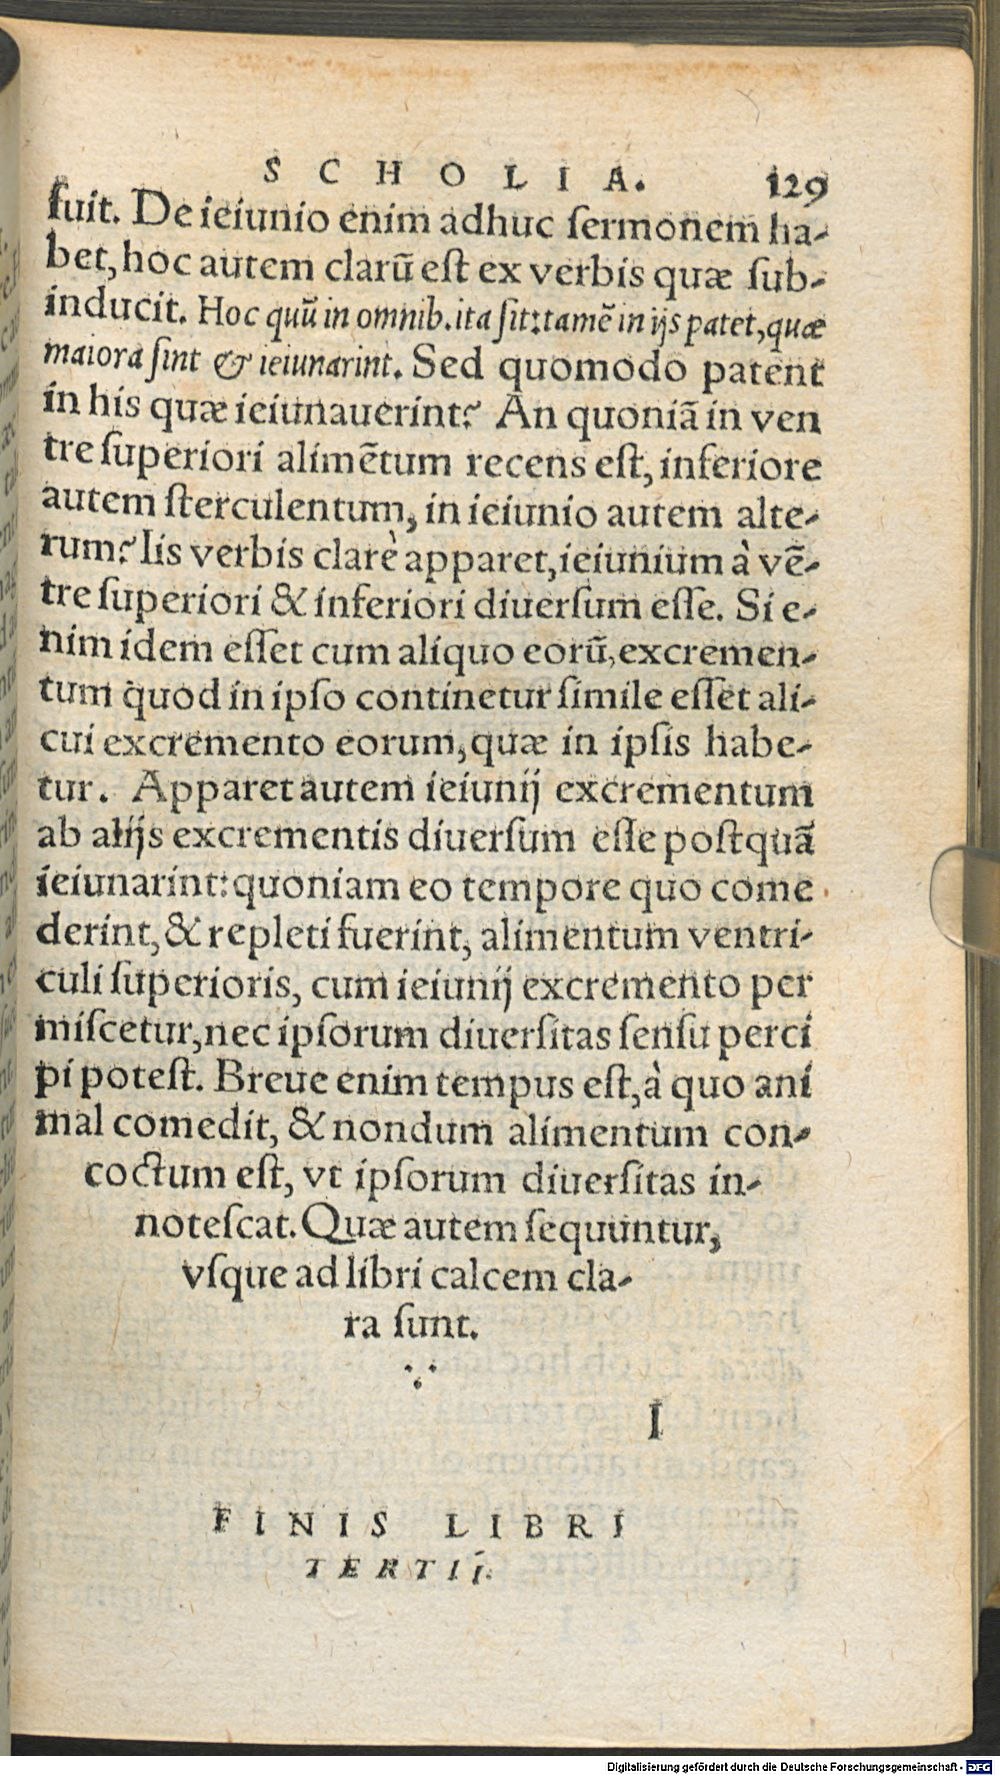 SCHOLIA. 129
suit. De ieiunio enim adhuc sermonem ha-
bet, hoc autem clarũ est ex verbis quæ sub-
inducit. Hoc quũ in omnib. ita sit: tamẽ in ijs patet, quæ
maiora sint & ieiunarint. Sed quomodo patent
in his quæ ieiunauerint? An quoniã in ven
tre superiori alimẽtum recens est, inferiore
autem sterculentum, in ieiunio autem alte-
rum? Iis verbis clarè apparet, ieiunium à vẽ-
tre superiori & inferiori diuersum esse. Si e-
nim idem esset cum aliquo eorũ, excremen-
tum quod in ipso continetur simile esset ali-
cui excremento eorum, quæ in ipsis habe-
tur. Apparet autem ieiunij excrementum
ab alijs excrementis diuersum esse postquã
ieiunarint: quoniam eo tempore quo come
derint, & repleti fuerint, alimentum ventri-
culi superioris, cum ieiunij excremento per
miscetur, nec ipsorum diuersitas sensu perci
pi potest. Breue enim tempus est, à quo ani
mal comedit, & nondum alimentum con-
coctum est, vt ipsorum diuersitas in-
notescat. Quæ autem sequuntur,
vsque ad libri calcem cla-
ra sunt.
I
FINIS LIBRI
TERTII.
Digitalisierung gefördert durch die Deutsche Forschungsgemeinschaft - DFG